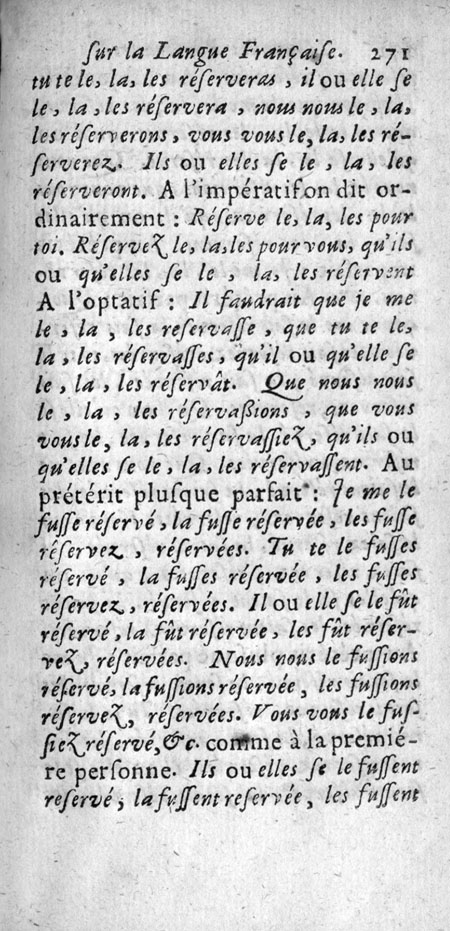 sur la Langue Française. 271
tu te le, la, les réserveras, il ou elle se
le, la, les réservera, nous nous le, la,
les réserverons, vous vous le, la, les ré-
serverez. Ils ou elles se le, la, les
réserveront. A l'impératif on dit or-
dinairement : Réserve le, la, les pour
toi. Réservez le, la, les pour vous, qu'ils
ou qu'elles se le, la, les réservent
A l'optatif : Il faudrait que je me
le, la, les reservasse, que tu te le,
la, les réservasses, qu'il ou qu'elle se
le, la, les réservât. Que nous nous
le, la, les réservaßions, que vous
vous le, la, les réservassiez, qu'ils ou
qu'elles se le, la, les réservassent. Au
prétérit plusque parfait : Je me le
fusse réservé, la fusse réservée, les fusse
réservez, réservées. Tu te le fusses
réservé, la fusses réservée, les fusses
réservez, réservées. Il ou elle se le fût
réservé, la fût réservée, les fût réser-
vez, réservées. Nous nous le fussions
réservé, la fussions réservée, les fussions
réservez, réservées. Vous vous le fus-
siez réservé, &c. comme à la premié-
re personne. Ils ou elles se le fussent
reservé; la fussent reservée, les fussent